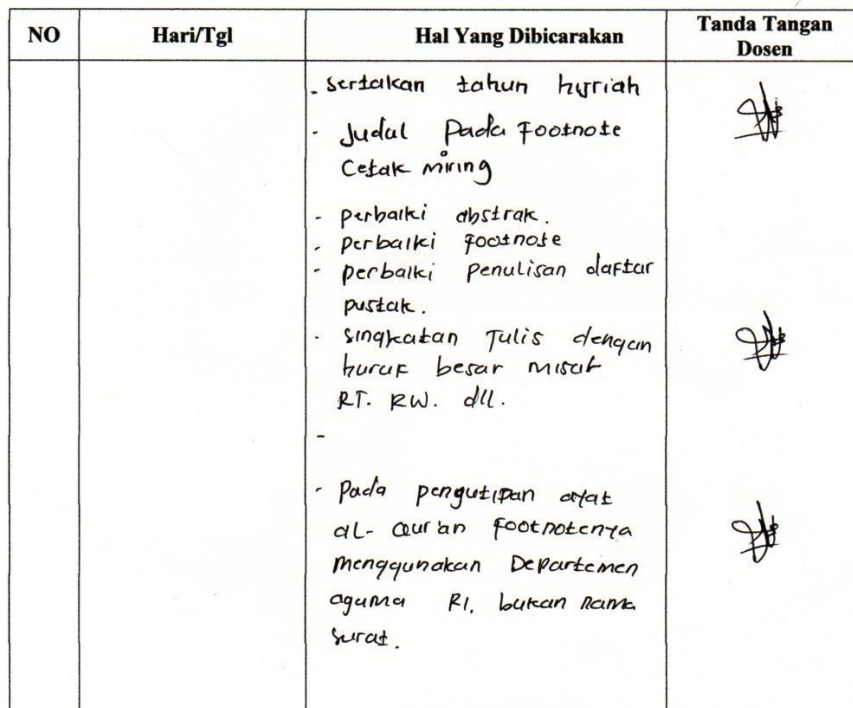 NO Hari/Tgl Hal Yang Dibicarakan Tanda Tangan
Dosen
- sertakan tahun hijriah
- Judul Pada Footnote
Cetak miring
- perbaiki abstrak.
- perbaiki footnote
- perbaiki penulisan daftar
pustak.
- singkatan Tulis dengan
huruf besar misal
RT. RW. dll.
-
- Pada pengutipan ayat
al-Qur'an footnotenya
menggunakan Departemen
agama RI. bukan nama
surat.